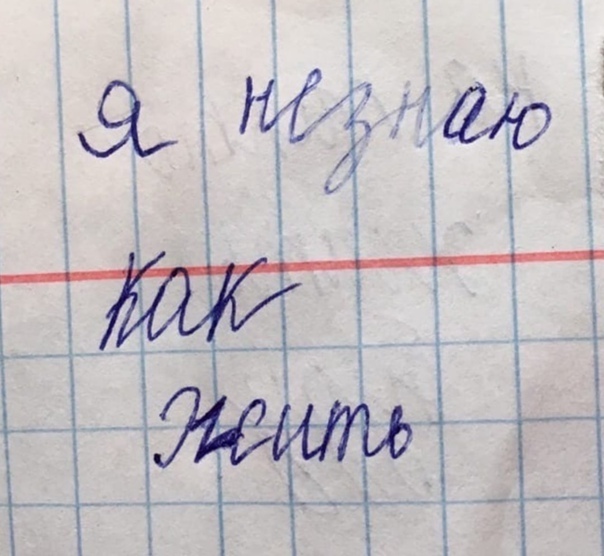 я незнаю
как
жить